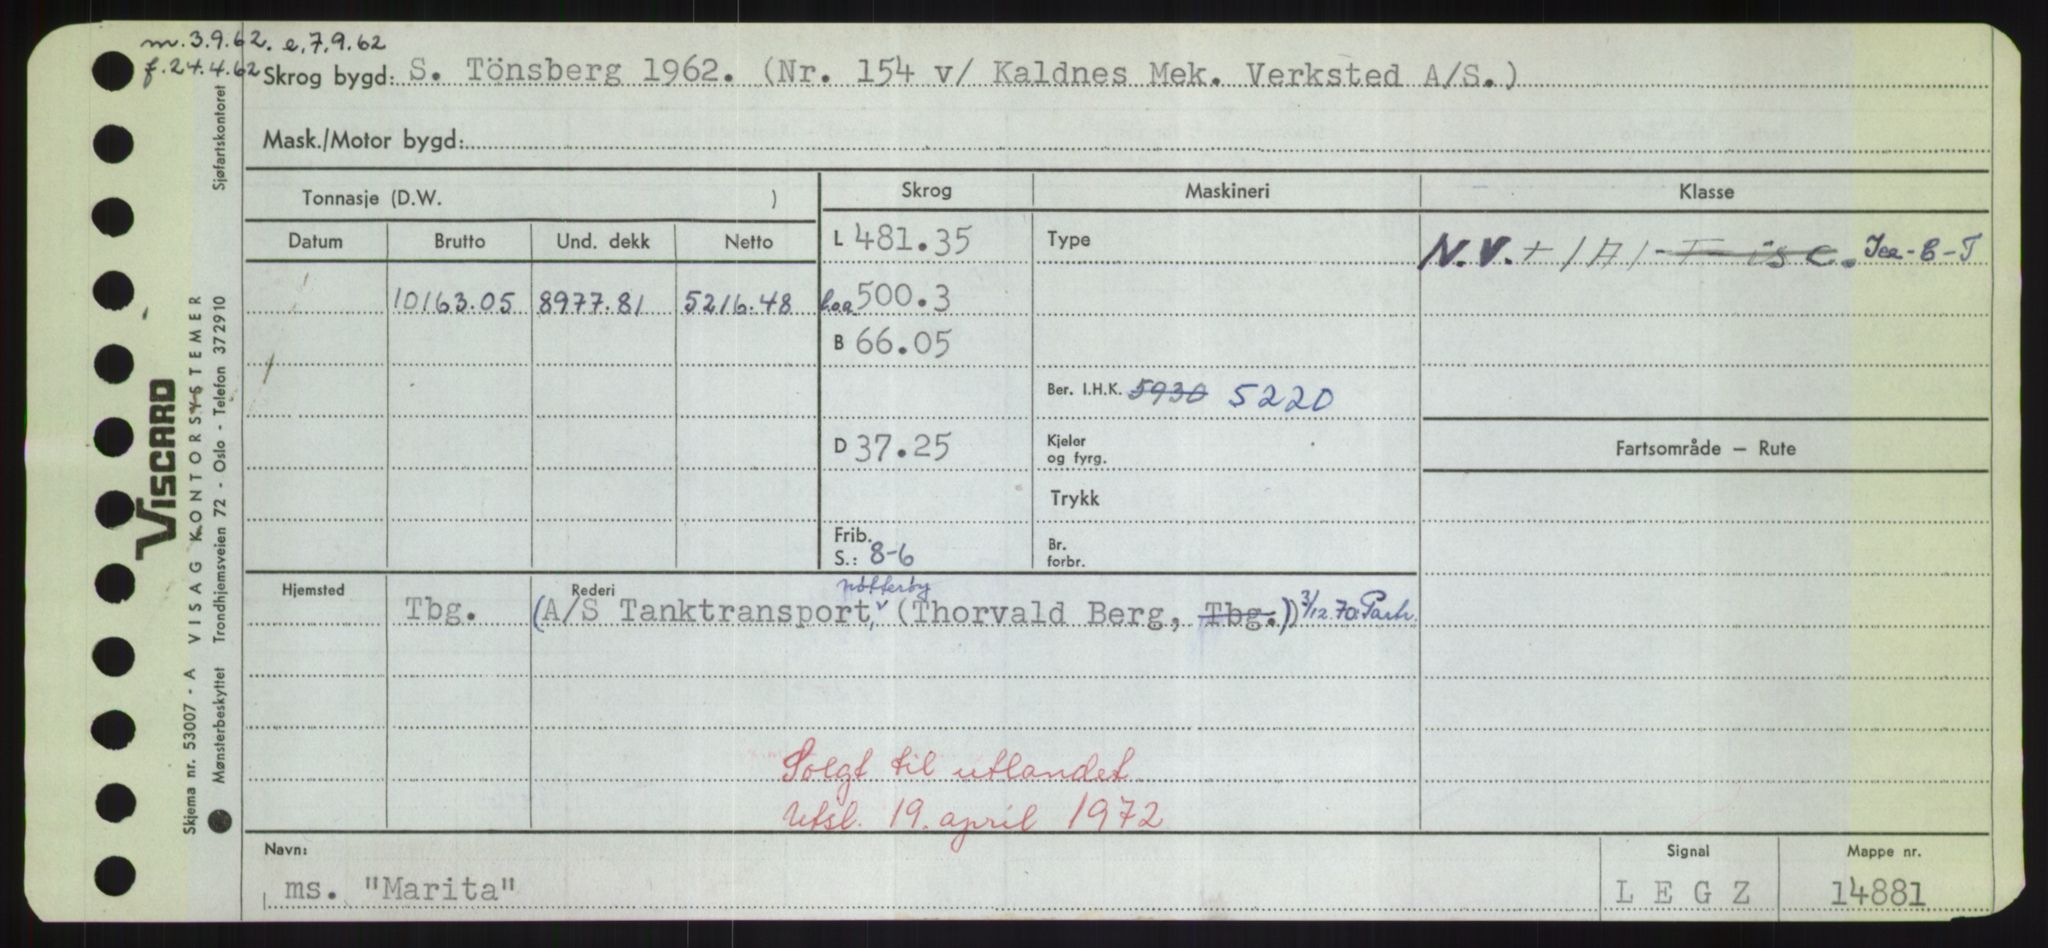 m. 3.9.62. e. 7.9.62
f. 24.4.62
Skrog bygd: S. Tönsberg 1962. (Nr. 154 v/ Kaldnes Mek. Verksted A/S.)
Mask./Motor bygd:
Tonnasje (D.W. )
Skrog
Maskineri
Klasse
Datum
Brutto
Und. dekk
Netto
L 481.35
Type
N.V. + 1A1 Ice-C-T
10163.05 8977.81 5216.48
Loa 500.3
B 66.05
Ber. I.H.K. 5930 5220
D 37.25
Kjeler
og fyrg.
Fartsområde – Rute
Trykk
Frib.
S.: 8-6
Br.
forbr.
Hjemsted
Rederi
nøtterøy
Tbg. (A/S Tanktransport, (Thorvald Berg, Tbg.)) 3/12.70: Partr.
Solgt til utlandet
Utsl. 19. april 1972
Navn:
Signal
Mappe nr.
ms. "Marita"
L E G Z
14881
VISCARD
Skjema nr. 53007 - A VISAG KONTORSYSTEMER
Mønsterbeskyttet Trondhjemsveien 72 - Oslo - Telefon 372910 Sjøfartskontoret